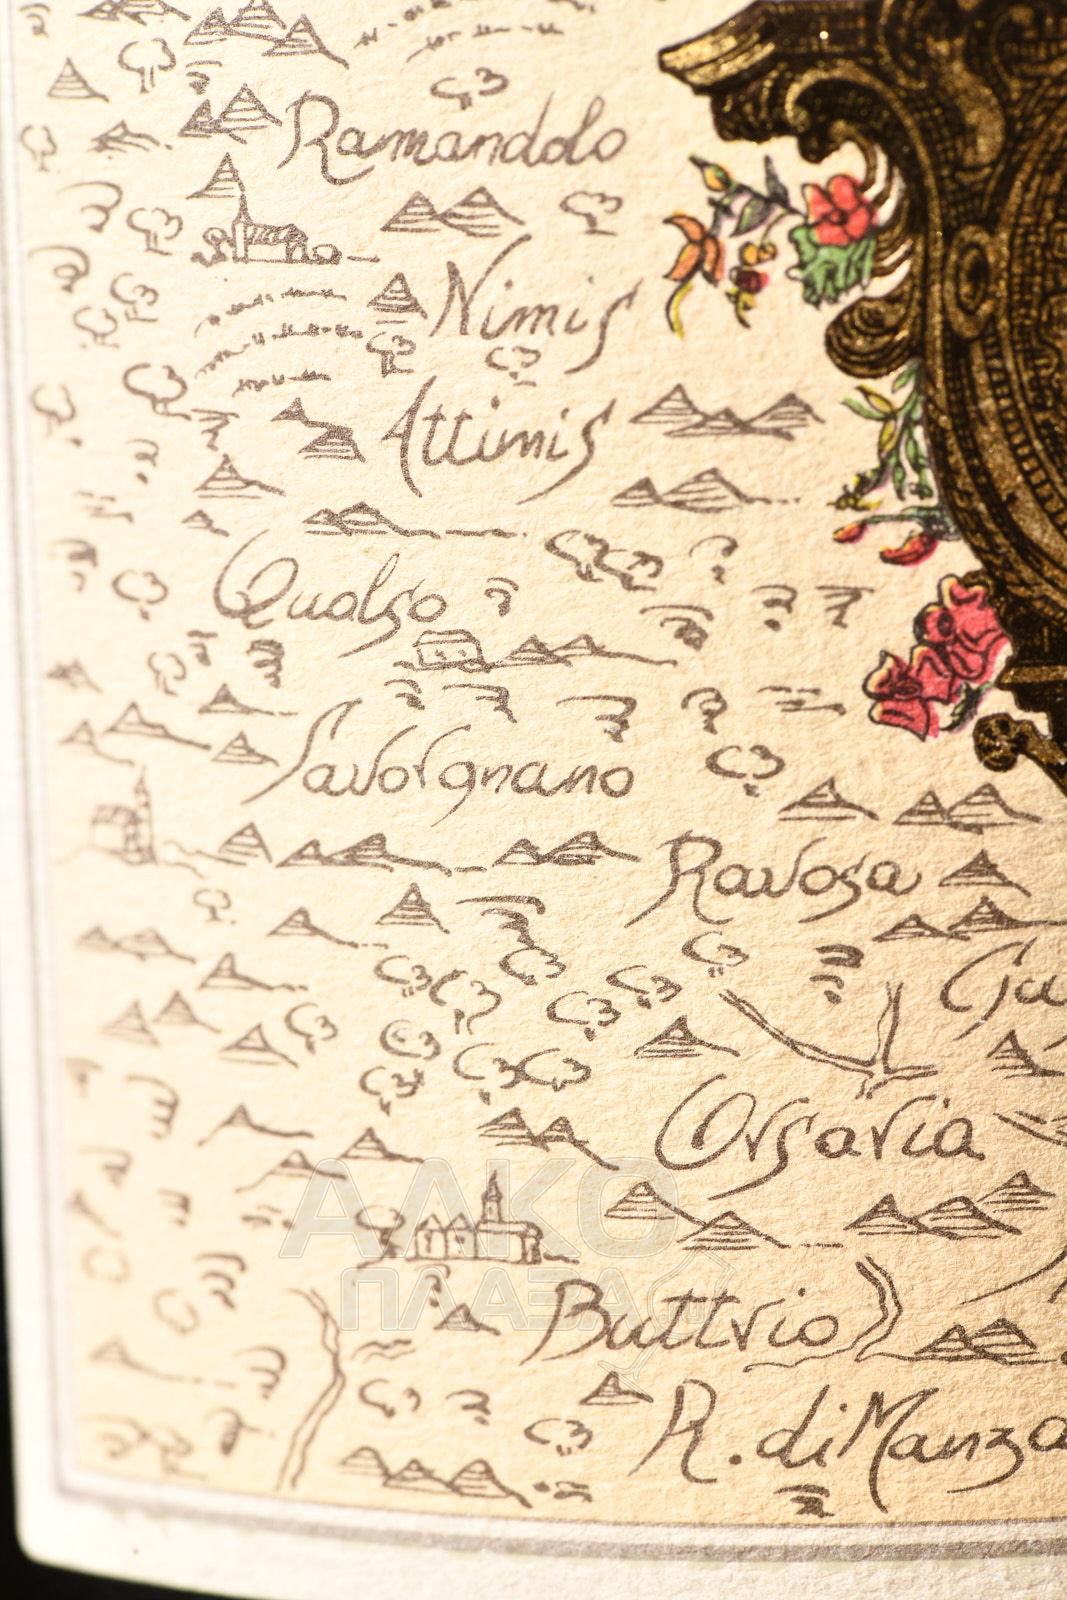 Ramandolo
Nimis
Attimis
Qualso
Savorgnano
Ravosa
Orsaria
АЛКО
ПЛАЗА
Buttrio
R. di Manza